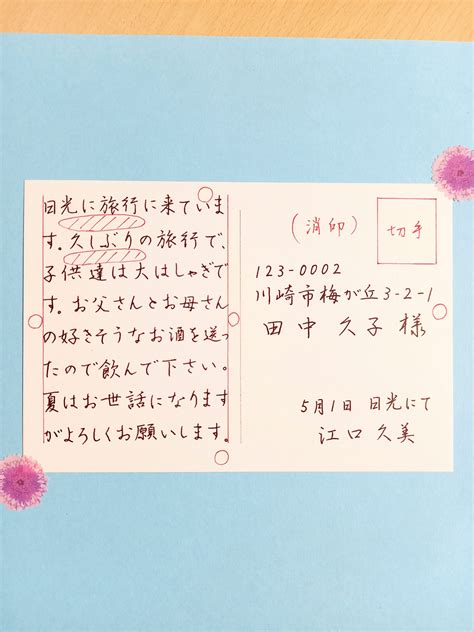 日光に旅行に来ていま
す。久しぶりの旅行で、
子供達は大はしゃぎで
す。お父さんとお母さん
の好きそうなお酒を送っ
たので飲んで下さい。
夏はお世話になります
がよろしくお願いします。
(消印)
切手
123-0002
川崎市梅が丘3-2-1
田中久子様
5月1日 日光にて
江口久美